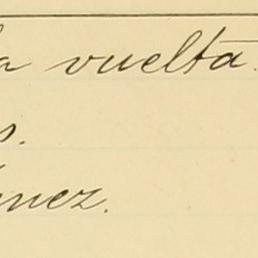 a vuelta.
s.
nez.